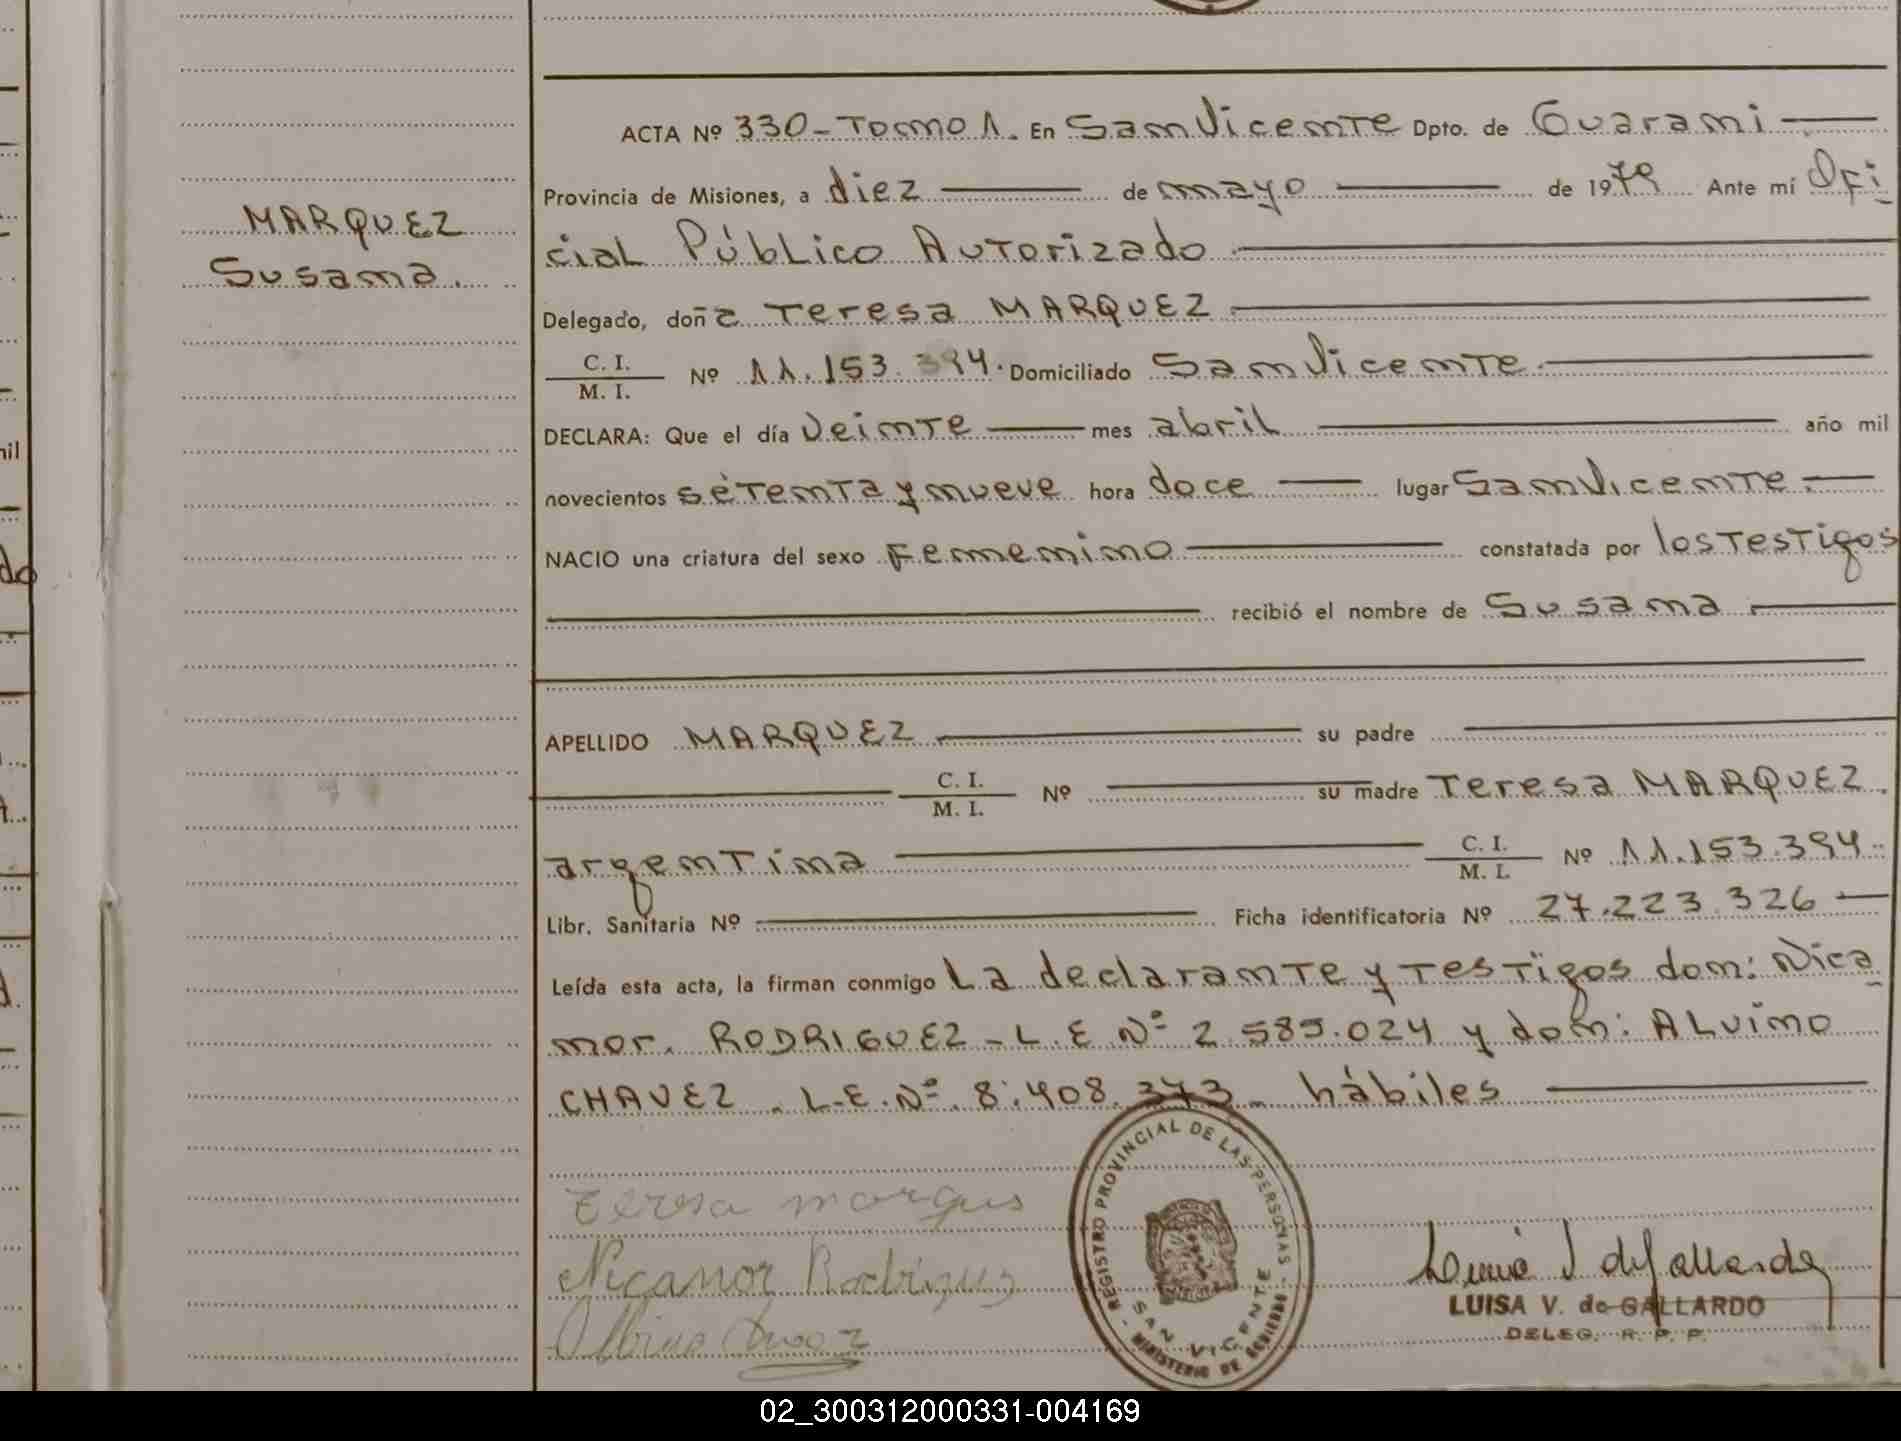 MARQUEZ
Susana.
ACTA Nº 330-Tomo 1. En San Vicente Dpto. de Guarani
Provincia de Misiones, a diez de mayo de 1979 Ante mí Ofi
cial Público Autorizado
Delegado, doña Teresa MARQUEZ
C. I.
M. I. Nº 11.153.394. Domiciliado San Vicente.
DECLARA: Que el día veinte mes abril año mil
novecientos setenta y nueve hora doce lugar San Vicente.
NACIO una criatura del sexo Femenino constatada por los Testigos
recibió el nombre de Susana
APELLIDO MARQUEZ su padre
C. I.
M. I. Nº su madre Teresa MARQUEZ.
argentina C. I.
M. I. Nº 11.153.394
Libr. Sanitaria Nº Ficha identificatoria Nº 27.223.326
Leída esta acta, la firman conmigo La declarante y Testigos don: Nica
nor. RODRIGUEZ - L.E Nº 2.585.024 y don: ALvino
CHAVEZ. L.E.Nº. 8.408.373- hábiles
Teresa marques
Nicanor Rodriguez
REGISTRO PROVINCIAL DE LAS PERSONAS
SAN VICENTE
MINISTERIO DE GOBIERNO
LUISA V. de GALLARDO
DELEG. R. P. P.
02_300312000331-004169